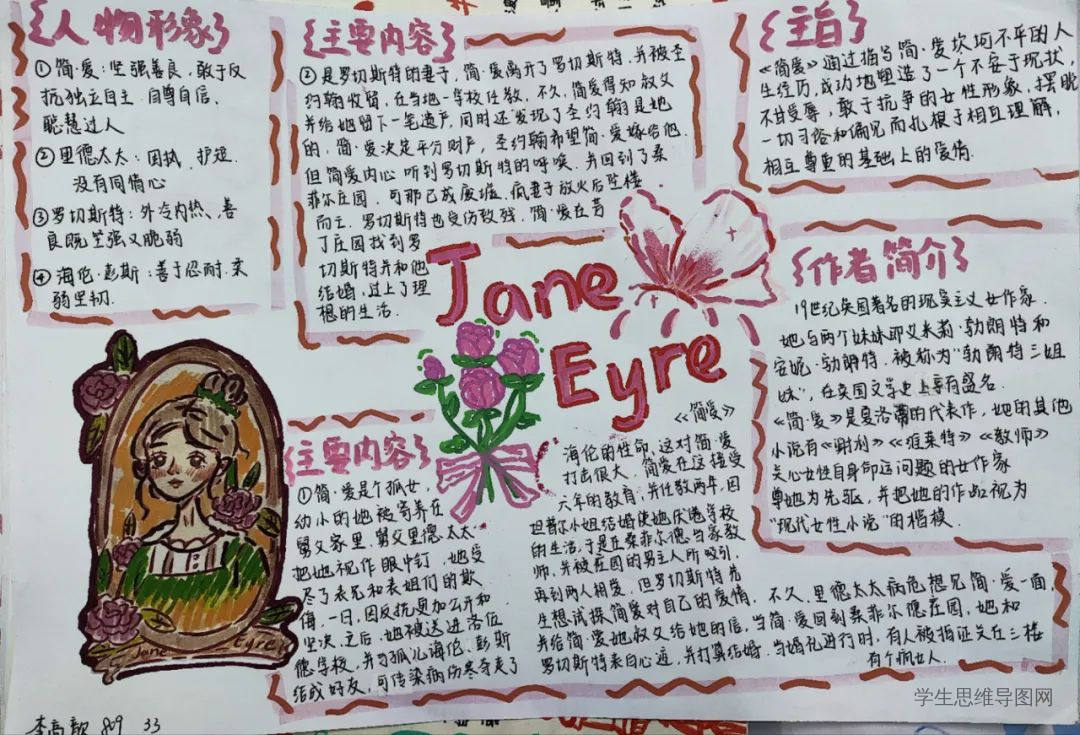 人物形象
①简·爱:坚强善良,敢于反
抗独立自主.自尊自信,
聪慧过人
②里德太太:固执、护短.
没有同情心
③罗切斯特:外冷内热、善
良既坚强又脆弱
④海伦·彭斯:善于忍耐.柔
弱坚韧.
主要内容
②是罗切斯特的妻子,简·爱离开了罗切斯特,并被圣
约翰收留,在当地一学校任教,不久,简爱得知叔父
并给她留下一笔遗产,同时还发现了圣约翰是她
的,简·爱决定平分财产,圣约翰希望简·爱嫁给他.
但简爱内心听到罗切斯特的呼唤,并回到了桑
菲尔庄园,可那已成废墟.疯妻子放火后坠楼
而亡.罗切斯特也受伤致残,简·爱在芬
丁庄园找到罗
切斯特并和他
结婚,过上了理
想的生活.
主旨
《简爱》通过描写简·爱坎坷不平的人
生经历,成功地塑造了一个不安于现状,
不甘受辱,敢于抗争的女性形象,摆脱
一切习俗和偏见而扎根于相互理解,
相互尊重的基础上的爱情.
Jane
Eyre
作者简介
19世纪英国著名的现实主义女作家.
她与两个妹妹耶义米莉·勃朗特和
安妮·勃朗特,被称为"勃朗特三姐
妹",在英国文学史上享有盛名.
《简·爱》是夏洛蒂的代表作,她的其他
小说有《谢利》《维莱特》《教师》
关心女性自身命运问题的女作家
尊她为先驱,并把她的作品视为
"现代女性小说"的楷模.
主要内容
①简·爱是个孤女,
幼小的她被寄养在
舅父家里,舅父里德太太
把她视作眼中钉,她受
尽了表兄和表姐们的欺
侮,一日,因反抗更加公开和
坚决,之后,她被送进洛伍
德学校,并与孤儿海伦·彭斯
结成好友,可传染病伤寒夺走了
《简爱》
海伦的性命,这对简·爱
打击很大,简爱在这接受
六年的教育,并任教两年,因
坦普尔小姐结婚使她厌倦学校
的生活,于是在桑菲尔德当家教
师,并被庄园的男主人所吸引,
再到两人相爱,但罗切斯特先
生想试探简爱对自己的爱情,不久,里德太太病危想见简·爱一面,
并给简·爱她叔父给她的信,当简·爱回到桑菲尔德庄园,她和
罗切斯特表白心迹,并打算结婚.当婚礼进行时,有人被指证关在三楼
有个疯女人.
Jane Eyre
809 33
学生思维导图网